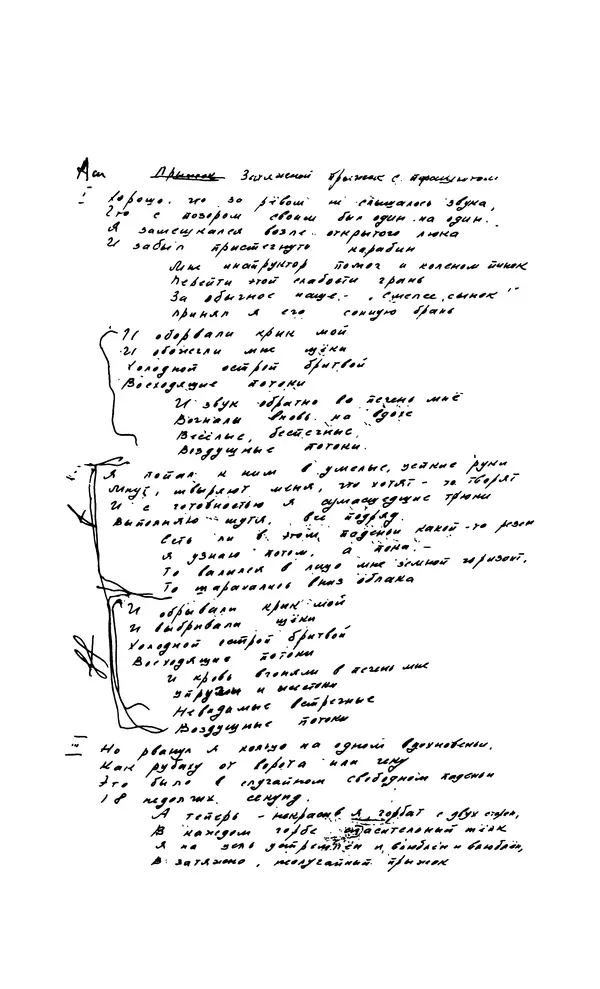 Прыжок Затяжной прыжок с парашютом
I Хорошо, что за рёвом не слышалось звука,
Что с позором своим был один на один.
Я замешкался возле открытого люка
И забыл пристегнуть карабин
Мне инструктор помог и коленом пинок
Перейти этой слабости грань
За обычное наше - „смелее, сынок"
Принял я его сонную брань
И оборвали крик мой
И обожгли мне щёки
Холодной острой бритвой
Восходящие потоки
И звук обратно во печень мне
Вогнали вновь на вдохе
Весёлые, беспечные,
Воздушные потоки.
Я попал к ним в умелые, цепкие руки
Мнут, швыряют меня, что хотят - то творят
И с готовностью я сумасшедшие трюки
Выполняю шутя, все подряд.
Есть ли в этом паденьи какой-то резон
Я узнаю потом, а пока -
То валился в лицо мне земной горизонт,
То шарахались вниз облака
И обрывали крик мой
И выбривали щёки
Холодной острой бритвой
Восходящие потоки
И кровь вгоняли в печень мне
Упруги и жестоки
Невидимые встречные
Воздушные потоки
III Но рванул я кольцо на одном вдохновеньи,
Как рубаху от ворота или чеку
Это было в случайном свободном паденьи
18 недолгих секунд.
А теперь - некрасив я, горбат с двух сторон,
В каждом горбе спасительный шёлк
Я на цель устремлён и влюблён и влюблён,
В затяжной, неслучайный прыжок